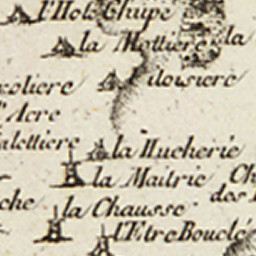 l'Hole Chupe
la Mottiere la
coliere iloisiere
l'Acre
alettiere la Hucherie
la Maitrie Ch
che la Chausse des
l'Etre Bouclé